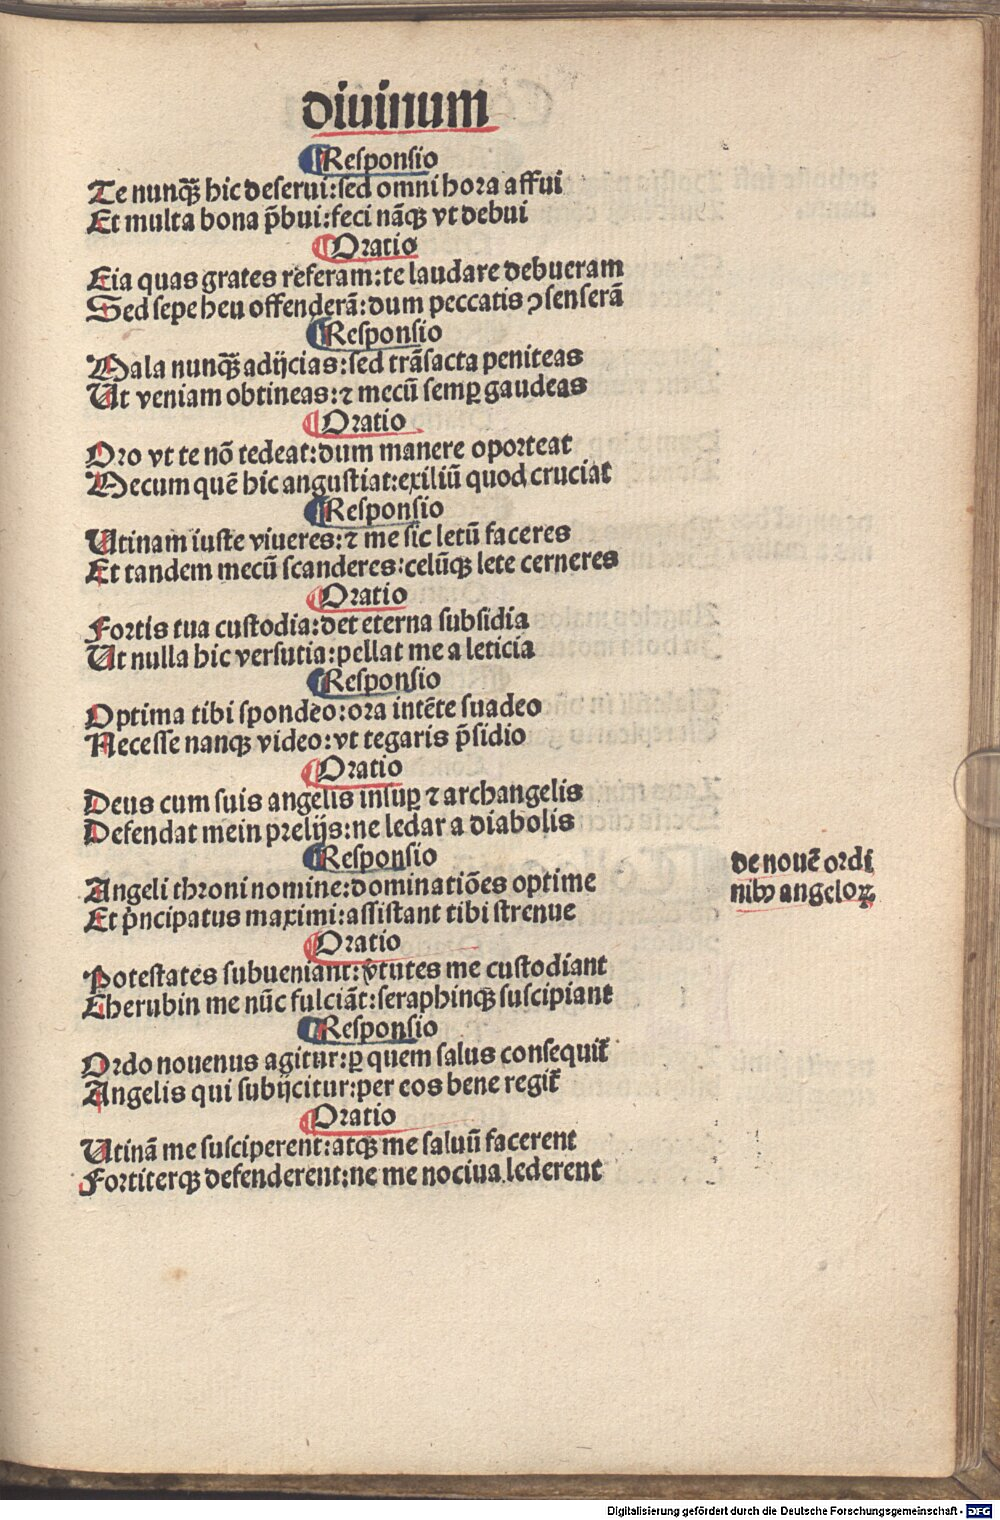 diuinum
¶Responsio
Te nunq̃ hic deserui:sed omni hora affui
Et multa bona p̃bui:feci nãqꝫ vt debui
¶Oratio
Eia quas grates referam:te laudare debueram
Sed sepe heu offenderã:dum peccatis ꝯsenserã
¶Responsio
Mala nunq̃ adijcias:sed trãsacta peniteas
Ut veniam obtineas:⁊ mecũ semꝑ gaudeas
¶Oratio
Oro vt te nõ tedeat:dum manere oporteat
Mecum quẽ hic angustiat:exiliũ quod cruciat
¶Responsio
Utinam iuste viueres:⁊ me sic letũ faceres
Et tandem mecũ scanderes:celũqꝫ lete cerneres
¶Oratio
Fortis tua custodia:det eterna subsidia
Ut nulla hic versutia:pellat me a leticia
¶Responsio
Optima tibi spondeo:ora intẽte suadeo
Necesse nanqꝫ video:vt tegaris p̃sidio
¶Oratio
Deus cum suis angelis insuꝑ ⁊ archangelis
Defendat me in prelijs:ne ledar a diabolis
¶Responsio
Angeli throni nomine:dominatiões optime
Et p̍ncipatus maximi:assistant tibi strenue
de nouẽ ordi
nibꝰ angeloꝝ
¶Oratio
Potestates subueniant:v̍tutes me custodiant
Cherubin me nũc fulciãt:seraphinqꝫ suscipiant
¶Responsio
Ordo nouenus agitur:ꝑ quem salus consequit᷑
Angelis qui subijcitur:per eos bene regit᷑
¶Oratio
Utinã me susciperent:atqꝫ me saluũ facerent
Fortiterqꝫ defenderent:ne me nociua lederent
Digitalisierung gefördert durch die Deutsche Forschungsgemeinschaft - DFG